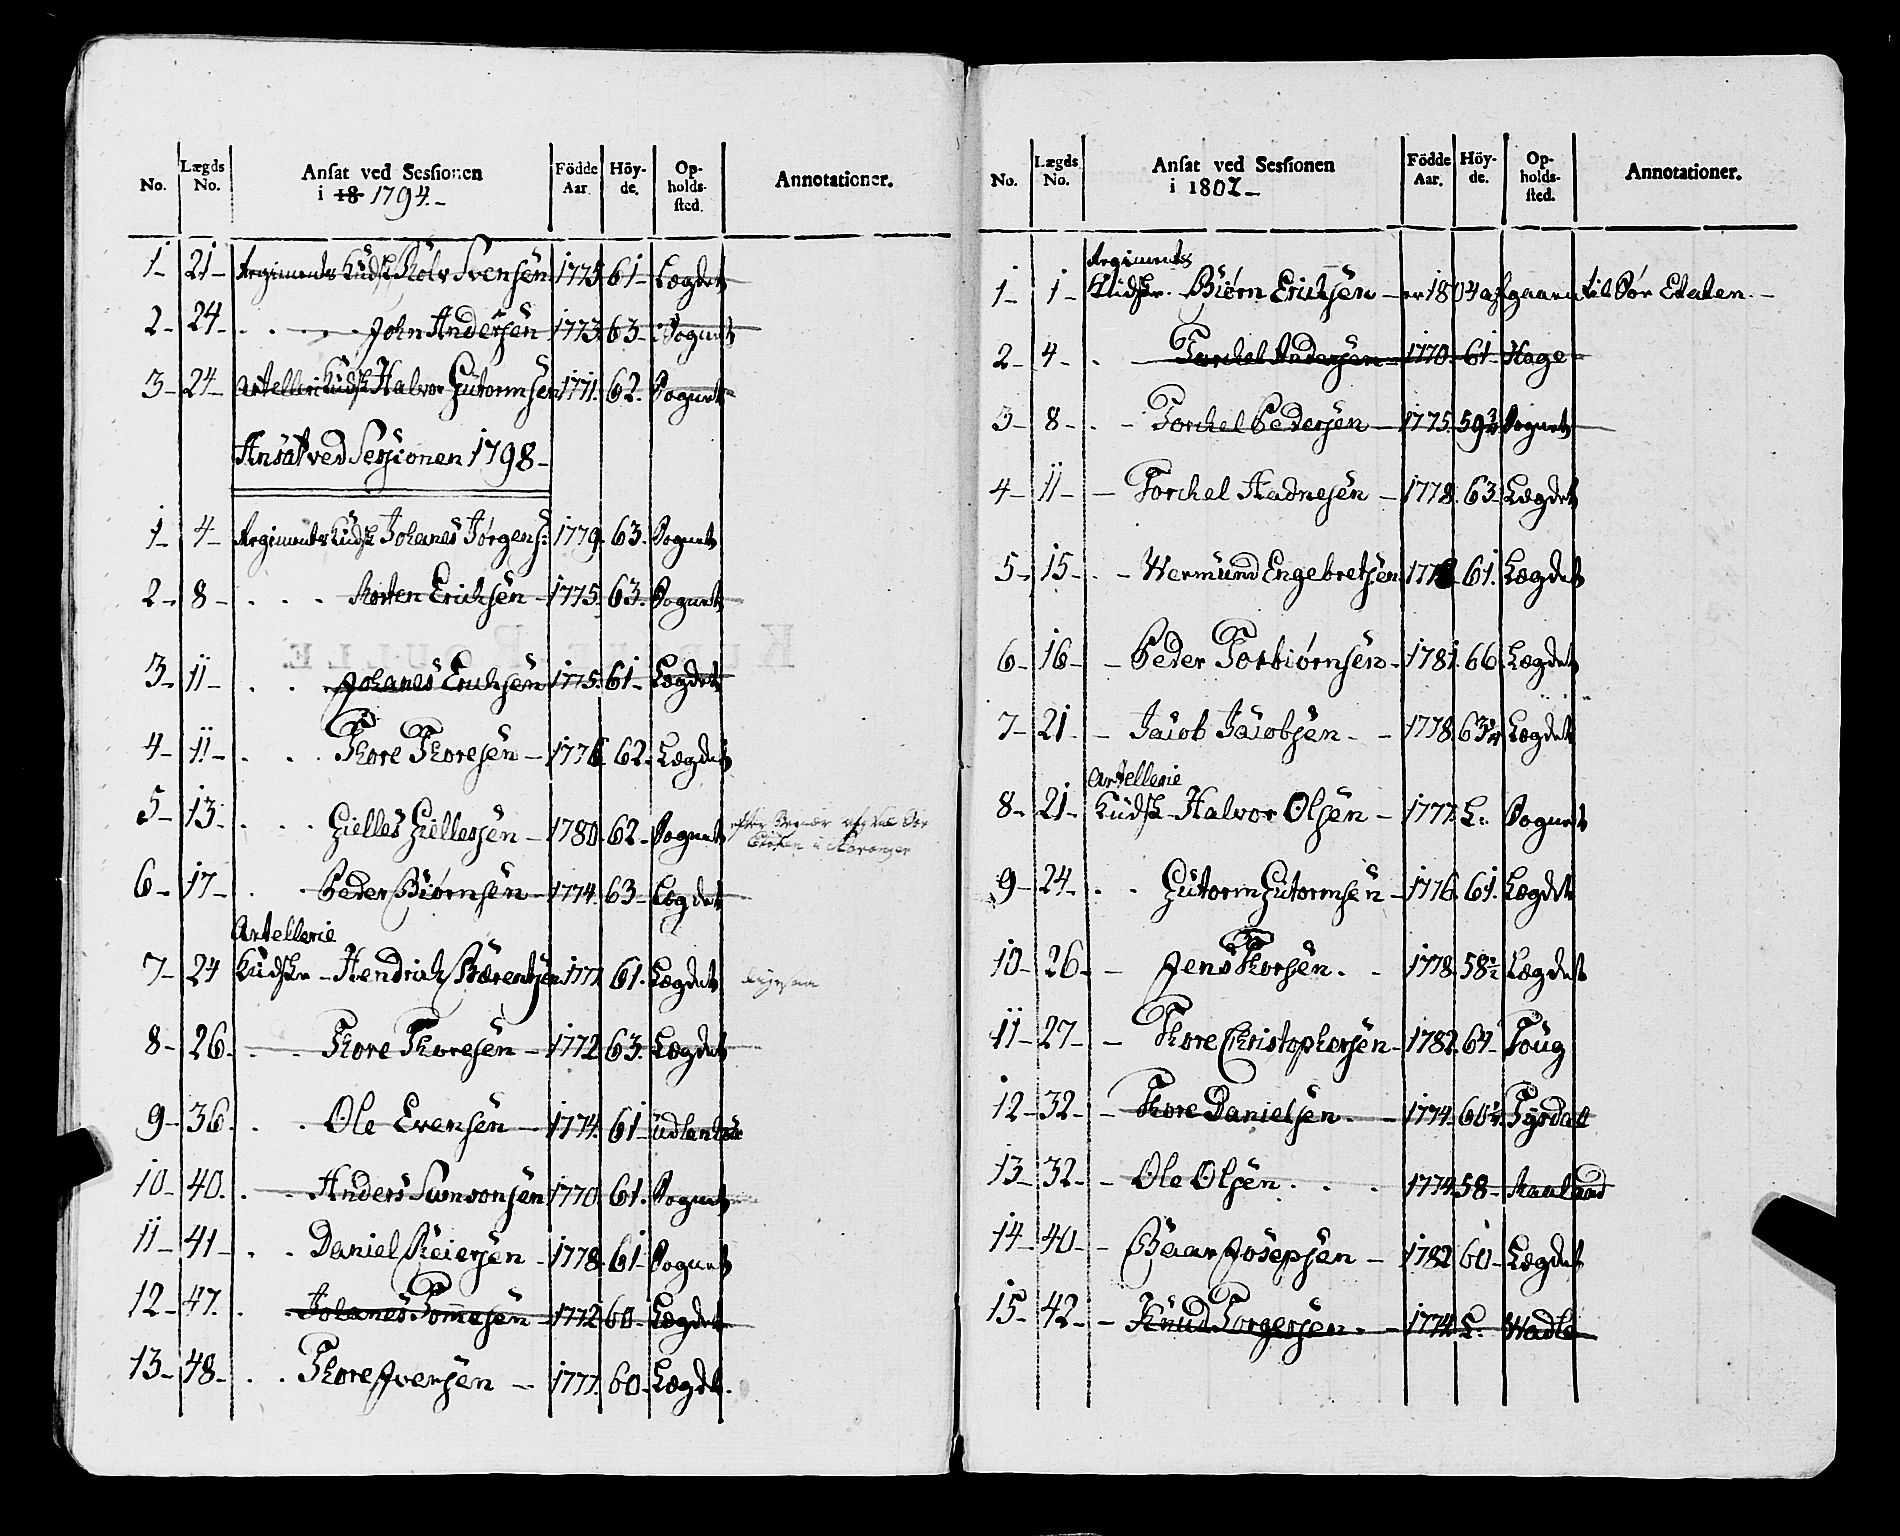 No. Lægds No. Ansat ved Sessionen i 18 1794.- Födde Aar. Höy-de. Op-holds-sted. Annotationer.
1- 21- Regiments Kudsk Rolv Svensen 1775 61- Lægdet
2- 24- . . . John Andersen 1773 63- Sognet
3- 24- Artelleri Kudsk Halvor Gutormsen 1771. 62. Sognet
Ansat ved Sessionen 1798-
1- 4- Regiments Kudsk Johanes Jørgens: 1779. 63. Sognet
2- 8- . . . Morten Erichsen - 1775. 63. Sognet
3- 11- . . Johanes Erichsen 1775. 61- Lægdet
4- 11- . . . Thore Thoresen - 1776 62. Lægdet
5- 13- . . . Gielles Giellessen - 1780. 62- Sognet
6- 17- . . Peder Biørnsen - 1774. 63- Lægdet
Artellerie
7- 24 Kudsk - Hendrich Bærentsen 1777. 61. Lægdet
8- 26- . . Thore Thoresen - 1772 63. Lægdet
9- 36. . . Ole Evensen - 1774. 61- udlændsk
10- 40. . . Anders Samvonsen 1770. 61. Sognet
11- 41- . . Daniel Reiersen - 1778. 61- Sognet
12- 47. . . Johanes Tommesen - 1772 60- Lægdet
13- 48- . . Thore Iversen - 1777. 60- Lægdt.
No. Lægds No. Ansat ved Sessionen i 1802- Födde Aar. Höy-de. Op-holds-sted. Annotationer.
Regiments
1- 1- Kudsk. Biørn Erichsen - er 1804 afgaaen til Sør Etaten.-
2- 4- . - Torchel Andersen - 1770. 61- Hage
3- 8- . - Torchel Pedersen - 1775. 59 3/4 Sognet
4- 11- - Torchel Aadnesen - 1778. 63. Lægdet
5- 15- . - Wermund Engebretsen 177 61. Lægdet
6- 16- - Peder Torbiørnsen - 1781. 66. Lægdet
7- 21- - Jacob Jacobsen - - 1778. 63 1/4 Lægdet
Artellerie
8- 21- Kudsk - Halvor Olsen - 1777. L. Sognet
9- 24- . . Gutorm Gutormsen - 1776. 61. Lægdet
10- 26- - Jens Thorsen. - 1778. 58 1/2 Lægdet
11- 27- - Thore Christophersen - 1782. 64- Toug
12- 32- - Thore Danielsen. - 1774. 60 1/4 Tyrdal
13- 32- - Ole Olsen. . . 1774. 58- Aaland
14- 40- - Baar Josepsen - 1782 60- Lægdet
15- 42- - Knud Torgersen. - 1774. L. Wadle